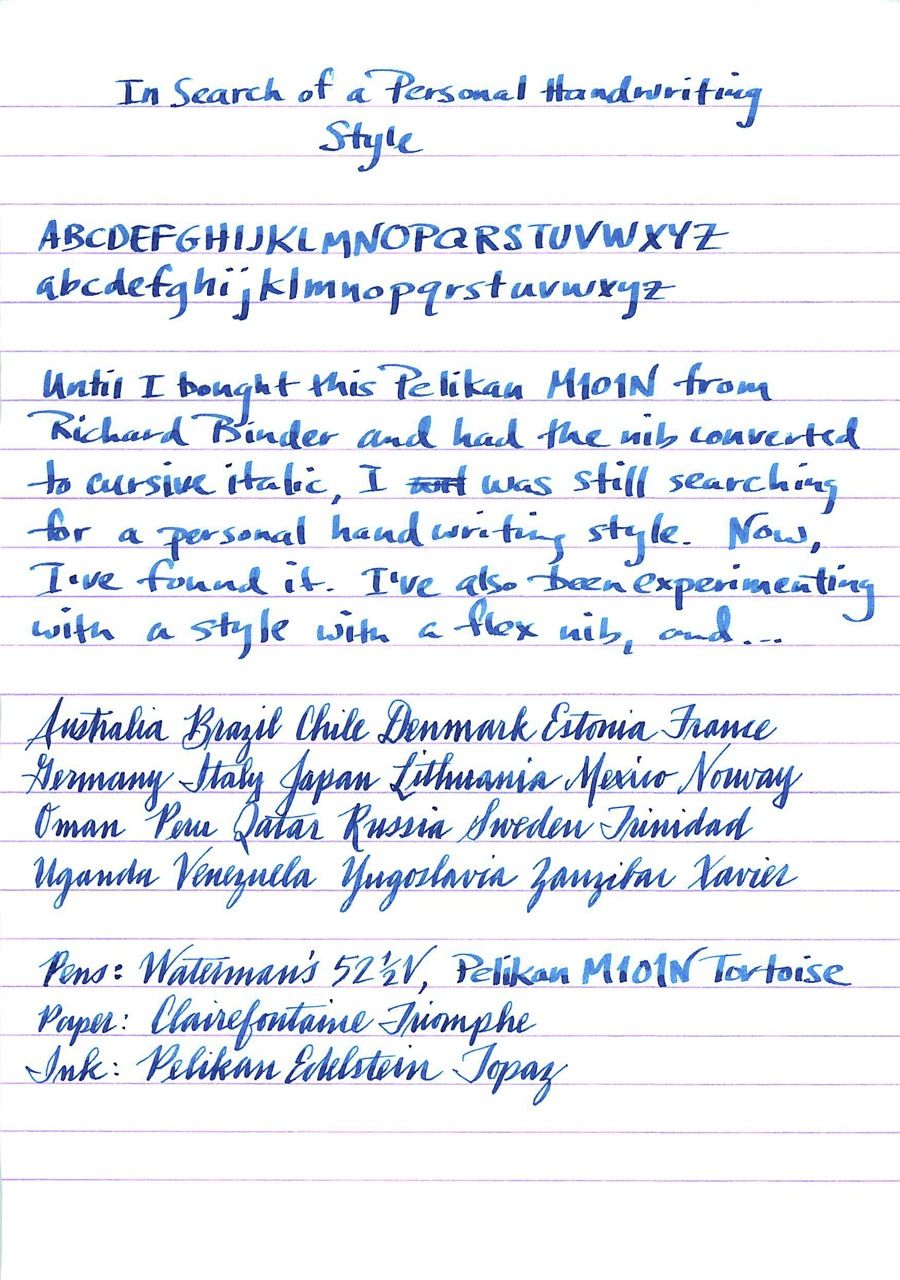 In Search of a Personal Handwriting
Style
ABCDEFGHIJKLMNOPQRSTUVWXYZ
abcdefghijklmnopqrstuvwxyz
Until I bought this Pelikan M101N from
Richard Binder and had the nib converted
to cursive italic, I was still searching
for a personal handwriting style. Now,
I've found it. I've also been experimenting
with a style with a flex nib, and...
Australia Brazil Chile Denmark Estonia France
Germany Italy Japan Lithuania Mexico Norway
Oman Peru Qatar Russia Sweden Trinidad
Uganda Venezuela Yugoslavia Zanzibar Xavier
Pens: Waterman's 52½V, Pelikan M101N Tortoise
Paper: Clairefontaine Triomphe
Ink: Pelikan Edelstein Topaz